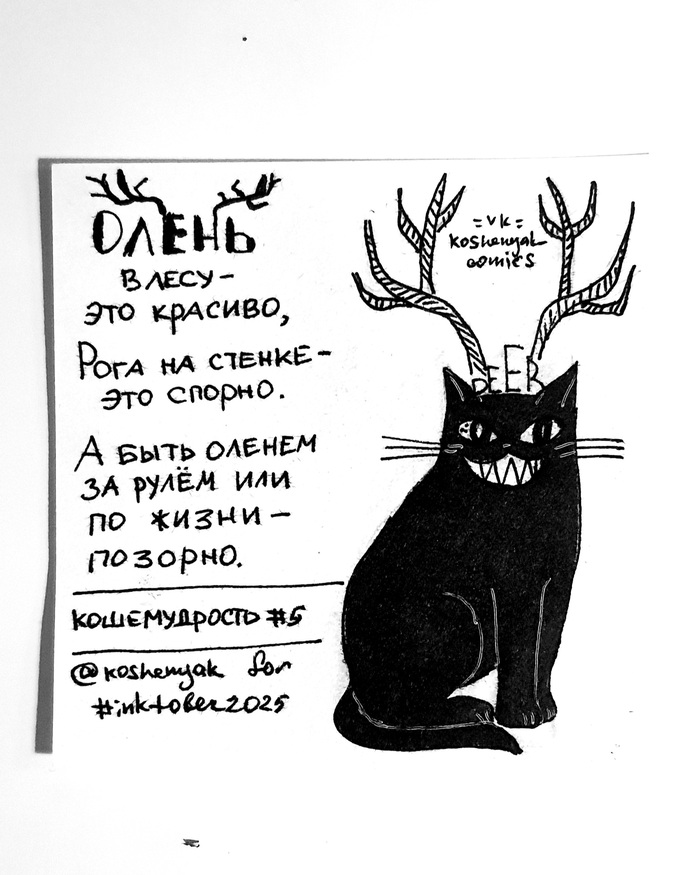 ОЛЕНЬ
В ЛЕСУ -
ЭТО КРАСИВО,
РОГА НА СТЕНКЕ -
ЭТО СПОРНО.
А БЫТЬ ОЛЕНЕМ
ЗА РУЛЁМ ИЛИ
ПО ЖИЗНИ -
ПОЗОРНО.
КОШЕМУДРОСТЬ #5
@koshenyak for
#inktober2025
=vk=
koshenyak
comics
DEER